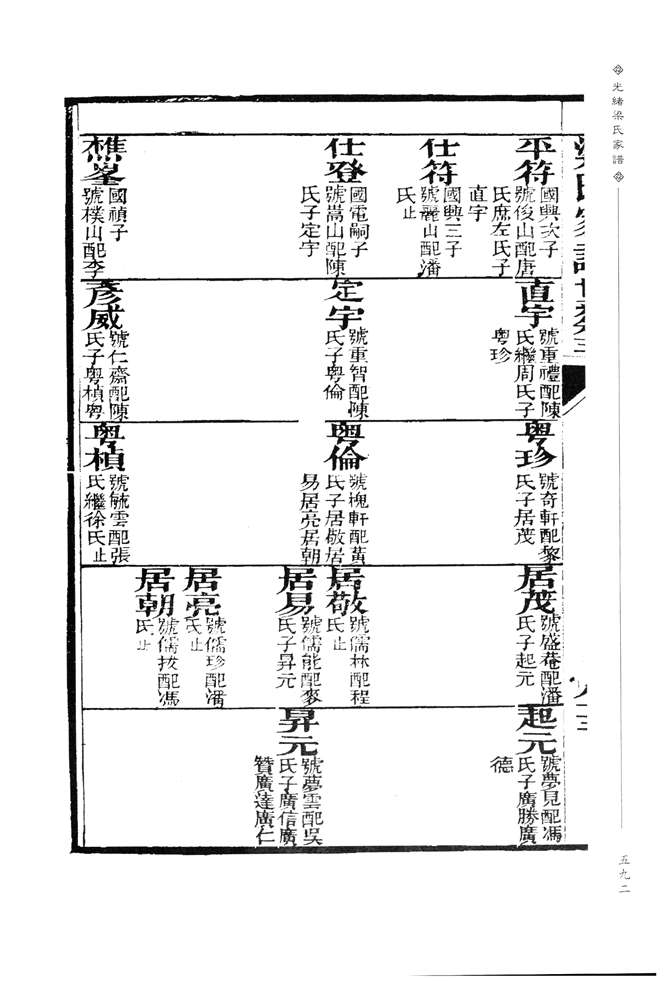 光緒梁氏家譜
平符
國興次子
號俊山配唐
氏庶左氏子
直宇
仕符
國興三子
號麗山配潘
氏止
仕登
國電嗣子
號嵩山配陳
氏子定宇
樵峯
國禎子
號樸山配李
直宇
號重禮配陳
氏繼周氏子
粤珍
定宇
號重智配陳
氏子粤倫
彥威
號仁齋配陳
氏子粤楨粤
粤珍
號奇軒配黎
氏子居茂
粤倫
號槐軒配黃
氏子居敬居
易居亮居朝
粤楨
號毓雲配張
氏繼徐氏止
居茂
號盛菴配潘
氏子起元
居敬
號儒林配程
氏止
居易
號儒能配麥
氏子昇元
居亮
號儒珍配潘
氏止
居朝
號儒拔配馮
氏止
起元
號夢見配馮
氏子廣勝廣
德
昇元
號夢雲配吳
氏子廣信廣
贊廣達廣仁
五九二